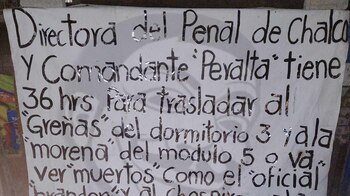 Directora del Penal de Chalco
y Comandante "Peralta" tiene
36 hrs Para trasladar al
"Greñas" del dormitorio 3 y a la
"morena" del modulo 5 o va a
ver "muertos" como el oficial